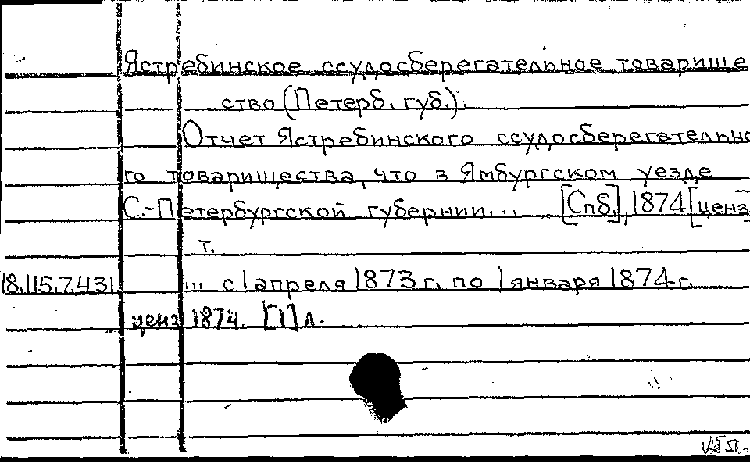 Ястребинское ссудосберегательное товарище
ство (Петерб. губ.).
Отчет Ястребинского ссудосберегательно
го товарищества, что в Ямбургском уезде
С.-Петербургской губернии... [Спб.], 1874 [ценз
т.
18.115.7.431 ... с 1 апреля 1873 г. по 1 января 1874 г.
ценз 1874. [1] л.